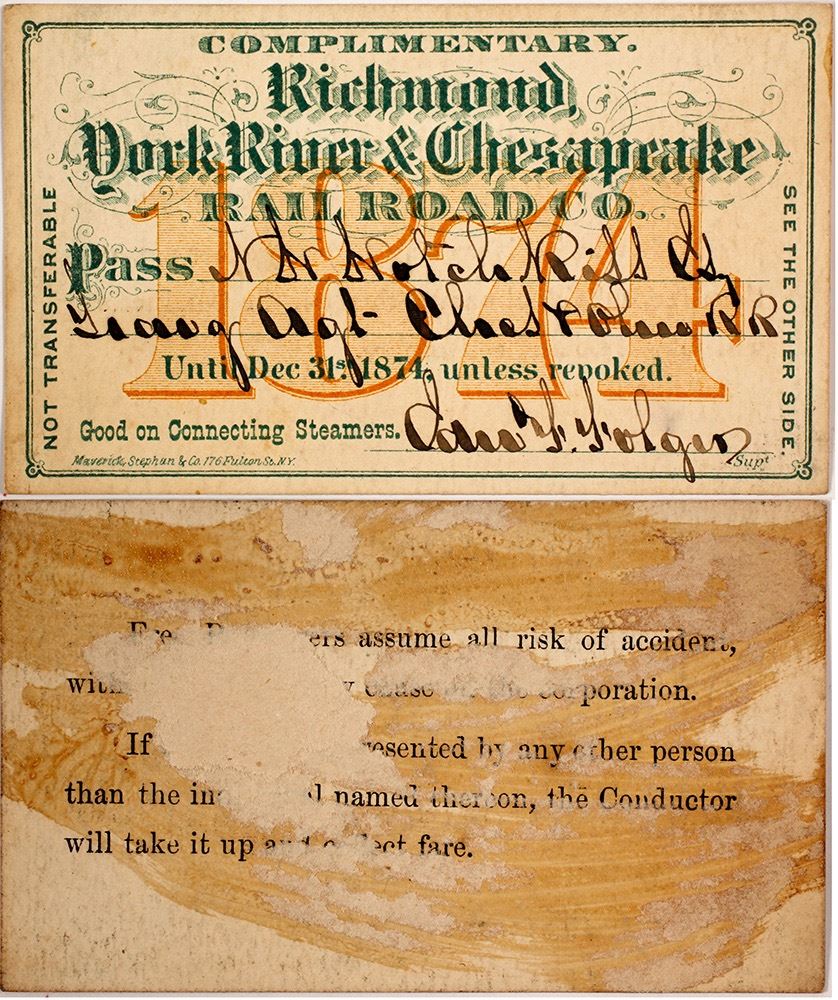 COMPLIMENTARY.
Richmond,
York River & Chesapeake
RAIL ROAD CO.
1874
NOT TRANSFERABLE
SEE THE OTHER SIDE.
Pass N W Hotchkiss Esq
Agt Ches & Ohio RR
Until Dec 31st. 1874, unless revoked.
Good on Connecting Steamers.
F. Folger
Supt
Maverick, Stephan & Co. 176 Fulton St. N.Y.
assume all risk of accident,
corporation.
If by any other person
than the named thereon, the Conductor
will take it up and collect fare.